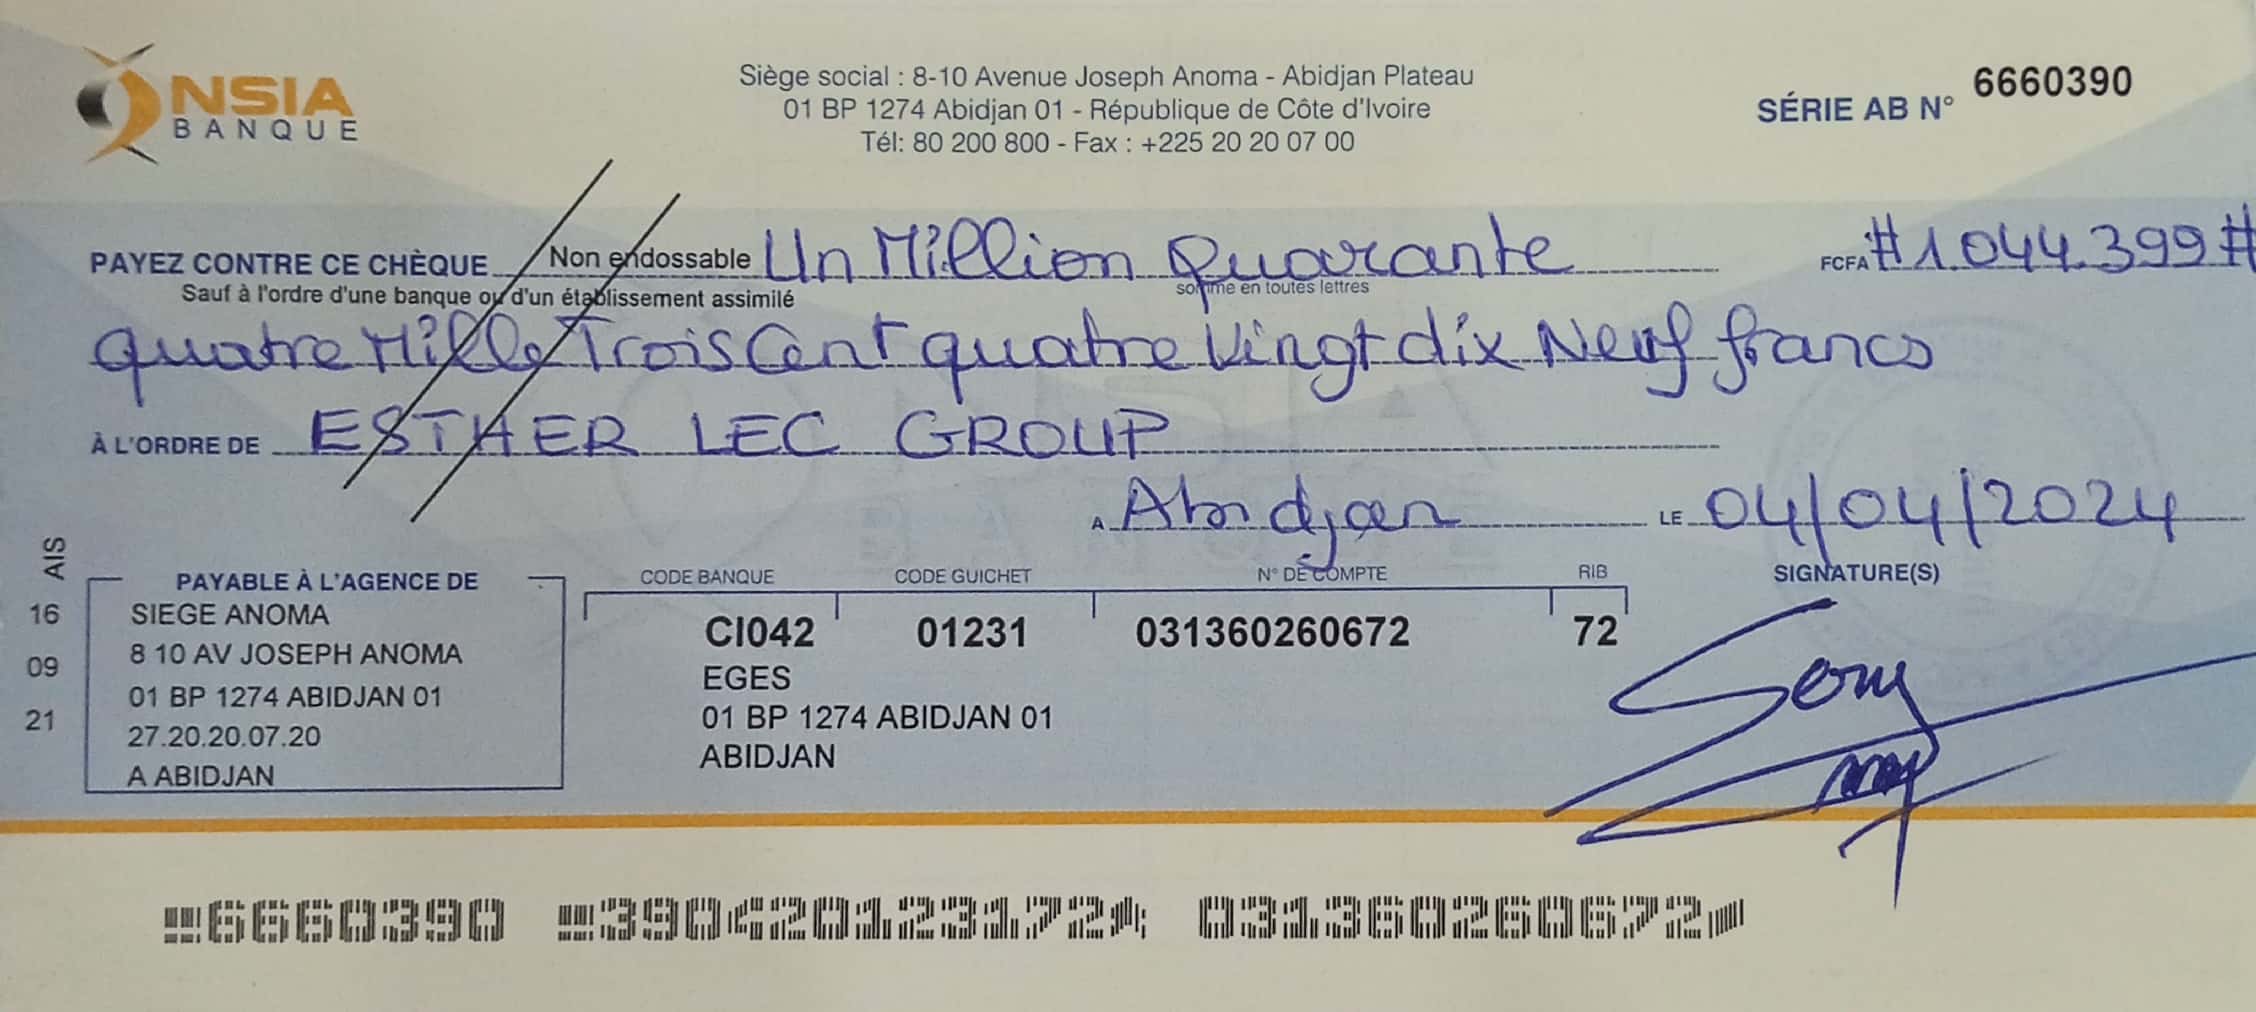 NSIA
BANQUE
Siège social : 8-10 Avenue Joseph Anoma - Abidjan Plateau
01 BP 1274 Abidjan 01 - République de Côte d'Ivoire
Tél: 80 200 800 - Fax : +225 20 20 07 00
SÉRIE AB N° 6660390
PAYEZ CONTRE CE CHÈQUE Non endossable Un Million Quarante FCFA #1.044.399#
Sauf à l'ordre d'une banque ou d'un établissement assimilé somme en toutes lettres
quatre Mille Trois Cent quatre Vingt dix Neuf francs
À L'ORDRE DE ESTHER LEC GROUP
A Abidjan LE 04/04/2024
AIS
16
09
21
PAYABLE À L'AGENCE DE
SIEGE ANOMA
8 10 AV JOSEPH ANOMA
01 BP 1274 ABIDJAN 01
27.20.20.07.20
A ABIDJAN
CODE BANQUE CODE GUICHET N° DE COMPTE RIB
CI042 01231 031360260672 72
EGES
01 BP 1274 ABIDJAN 01
ABIDJAN
SIGNATURE(S)
6660390 390420123172 031360260672